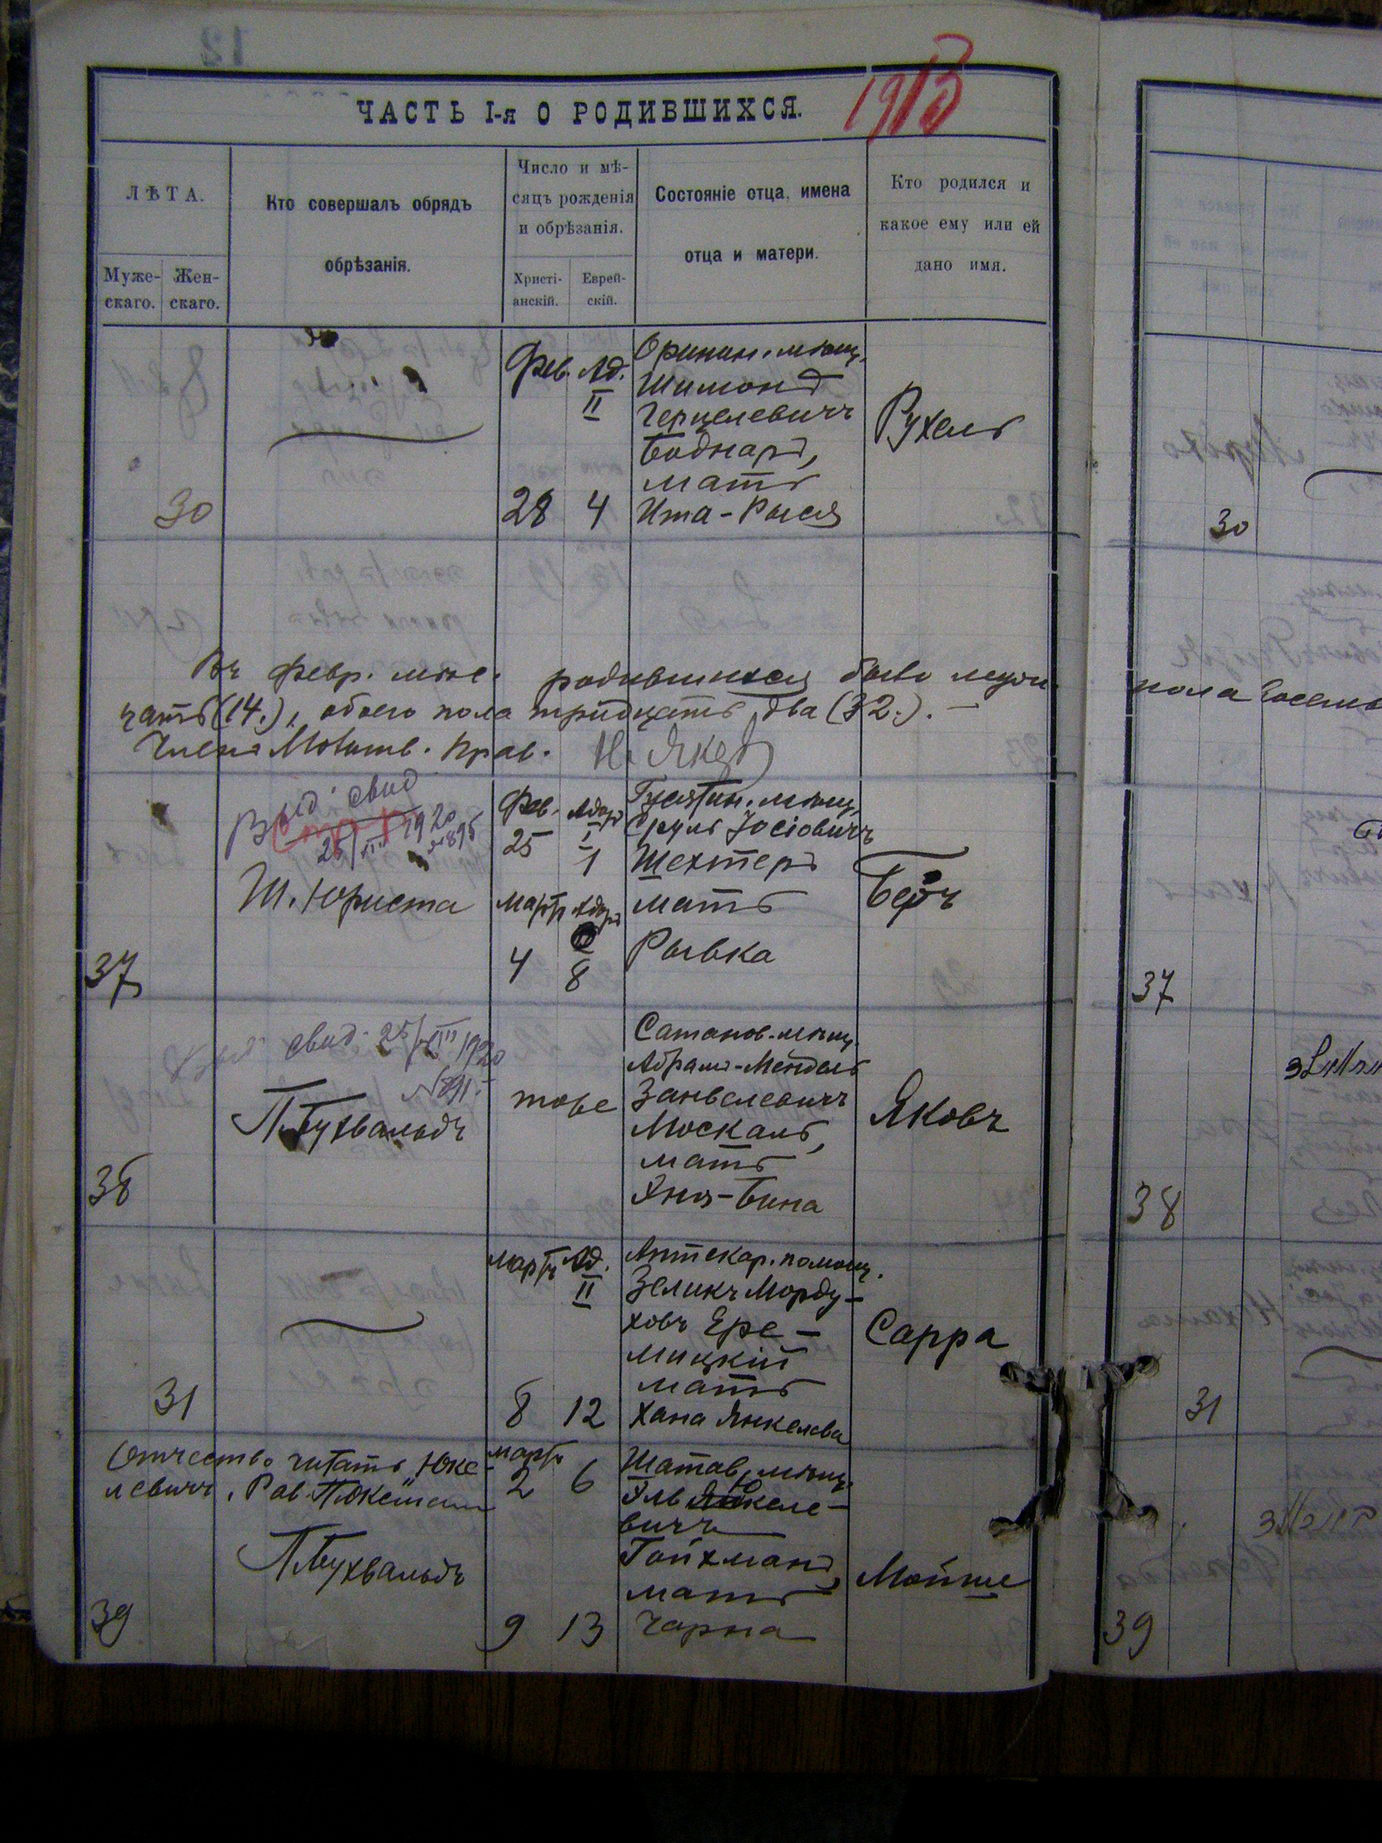 1913
ЧАСТЬ I-я О РОДИВШИХСЯ.
ЛѢТА.
Муже-
скаго.
Жен-
скаго.
Кто совершалъ обрядъ
обрѣзанія.
Число и мѣ-
сяцъ рожденія
и обрѣзанія.
Христі-
анскій.
Еврей-
скій.
Состояніе отца, имена
отца и матери.
Кто родился и
какое ему или ей
дано имя.
30
Фев. Ад.
II
28 4
Оринин. мѣщ.
Шимонъ
Герцелевичъ
Боднаръ,
мать
Ита-Рыся
Рухель
Въ февр. мѣс. родившихся было
(14.), обоего пола тридцать два (32.).
37
Выд. свид
1920
№ 895
Ш. Юриста
Фев. Адаръ
25 I
1
Мартъ Адаръ
4 8
Гусятин. мѣщ.
Сруль Іосіовичъ
Шехтеръ
мать
Рывка
Беръ
38
свид. 25/VIII 1920
П. Бухвальдъ
тоже
Сатанов. мѣщ.
Абрамъ-Мендель
Занвелевичъ
Москаль,
мать
Хня-Бина
Яковъ
31
Мартъ Ад.
II
8 12
Аптекар. помощ.
Зеликъ Морду-
ховъ Ере-
мицкій
мать
Хана Янкелева
Сарра
Отчество читать „Юке-
левичъ". Рав.
39
П. Бухвальдъ
мартъ
2 6
9 13
Шатав. мѣщ.
келе-
вичъ
Гойхманъ,
мать
Чарна
Мойше
30
пола восемь
37
38
31
39